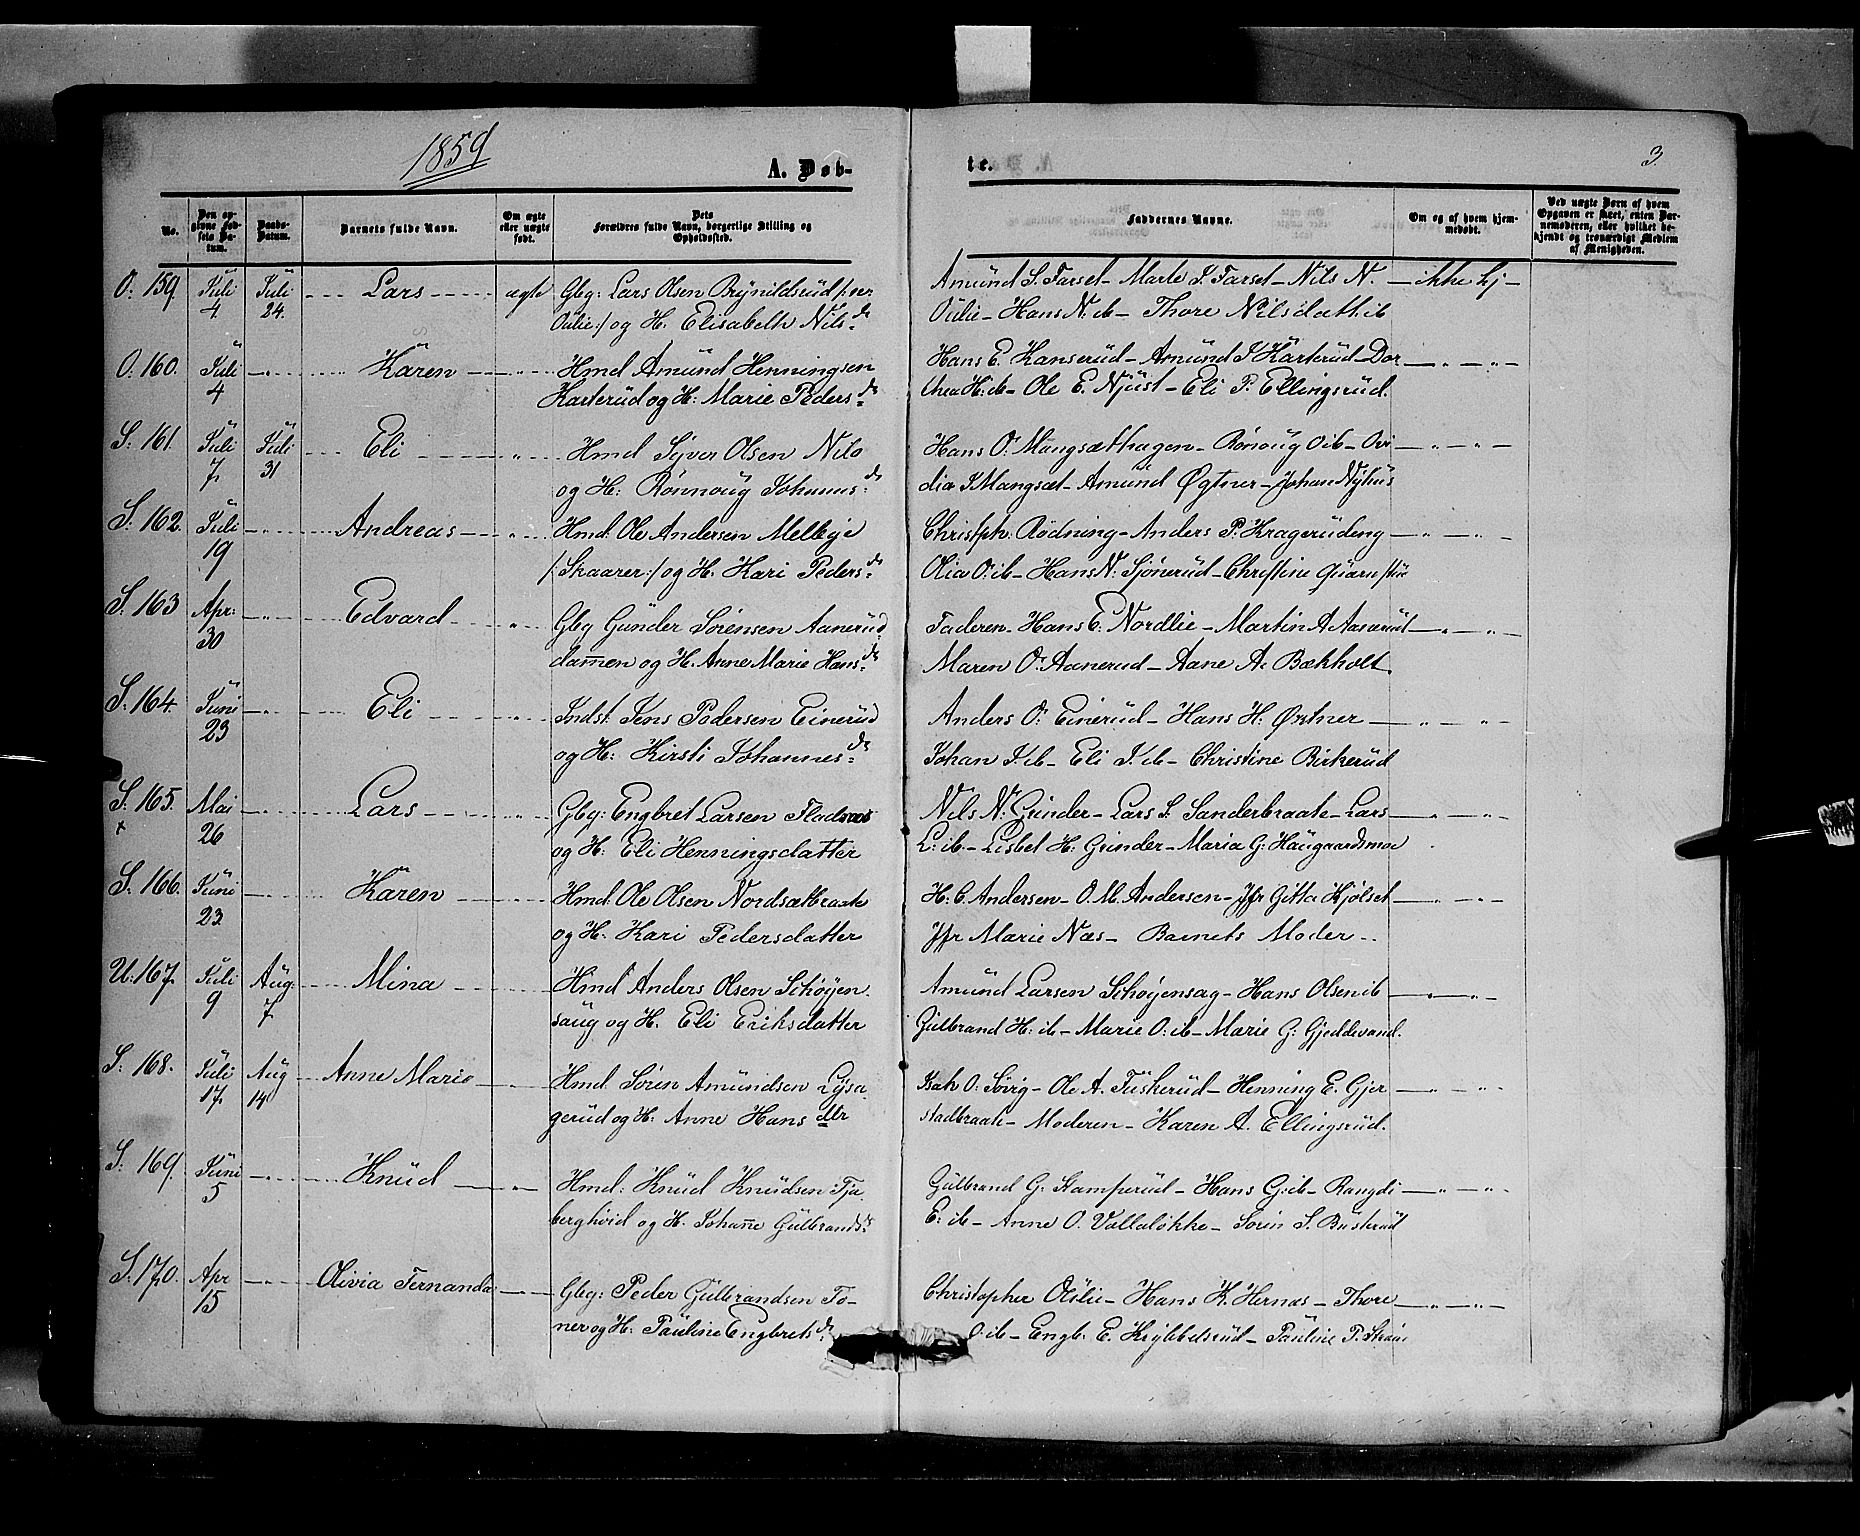 1859
A. Døb-
te.
3.
No.
Den opgivne Fødsels Datum.
Daabs-Datum.
Barnets fulde Navn.
Om ægte eller uægte født.
Dets Forældres fulde Navn, borgerlige Stilling og Opholdssted.
Faddernes Navne.
Om og af hvem hjemmedøbt.
Ved uægte Børn af hvem Opgaven er skeet, enten Barnemoderen, eller hvilket bekjendt og troværdigt Medlem af Menigheden.
O. 159. Juli 4 Juli 24. Lars ægte Gbg: Lars Olsen Brynildsrud
Oulie:/ og H. Elisabeth Nilsdr
Amund S. Farset - Marte S. Farset - Nils N. - ikke hj -
Oulie - Hans N. ib - Thore Nilsdatt. ib
O. 160. Juli 4 - " - Karen - " - Hmd Amund Henningsen
Karterud og H: Marie Pedersdr
Hans E. Kanserud - Amund J Karterud - Dor - " - " -
thea H: ib - Ole E. Njust - Eli P. Ellingsrud.
S. 161. Juli 7 Juli 31 Eli - " - Hmd Syver Olsen Nilo
og H: Rønnoug Johannisdr
Hans O. Mangsæthagen - Rønoug O ib - Ovi - " - " -
dia J Mangsæt - Amund Øgtner - Johan Nyhus
S. 162. Juli 19 - " - Andreas - " - Hmd. Ole Andersen Melleje
/:Skaarer:/ og H. Kari Pedersdr
Christph: Rødning - Anders P. Kragerudeng - " - " -
Olia O: ib - Hans N: Sjønerud - Christine Quarnstue
S. 163 Apr: 30 - " - Edvard - " - Gbg Gunder Sørensen Aanerud
dammen og H. Anne Marie Hansdr
Faderen - Hans E. Nordlie - Martin A Aaserud - " - " -
Maren O. Aanerud - Aane A. Bækholt
S. 164. Juni 23 - " - Eli - " - Indst. Jens Pedersen Einerud
og H: Kirsti Johannesdr
Anders O. Einerud - Hans H. Øktner - " - " -
Johan J. ib - Eli J. ib - Christine Birkerud
S. 165. + Mai 26 - " - Lars - " - Gbg: Engbret Larsen Fladnæs
og H: Eli Henningsdatter
Nils N: Grinder - Lars S. Sanderbraate - Lars - " - " -
L: ib - Lisbet H. Grinder - Maria G: Haugaardsmoe
S. 166. Juni 23 - " - Karen - " - Hmd. Ole Olsen Nordsætbraate
og H. Kari Pedersdatter
H. C. Andersen - O. M. Andersen - Jfr Gitta Hjølset - " - " -
Jfr Marie Næs - Barnets Moder -
U. 167. Juli 9 Aug. 7 Mina - " - Hmd Anders Olsen Schøyen
saug og H. Eli Eriksdatter
Amund Larsen Schøyensag - Hans Olsen ib - " - " -
Gulbrand H: ib - Marie O: ib - Marie G: Gjeddevand.
S. 168. Juli 17. Aug 14 Anne Marie - " - Hmd. Søren Amundsen Lysa
gerud og H. Anne Hansdtr
Isak O. Sørig - Ole A. Fuskerud - Henning E. Gjer - " - " -
stadbraate - Moderen - Karen A. Ellingsrud.
S. 169. Juni 5 - " - Knud - " - Hmd: Knud Knudsen Tja
berghvid og H. Johanne Gulbrandsdr
Gulbrand G. Kamperud - Hans G: ib - Rangdi - " - " -
E: ib - Anne O. Vallaløkke - Søren S. Busterud
S. 170. Apr 15 - " - Olivia Fernanda - " - Gbg: Peder Gulbrandsen To-
ner og H: Pauline Engbretsdr
Christopher Oulie - Hans K. Hernæs - Thore - " - " -
O: ib - Engb: E. Krybbelsrud - Pauline P.